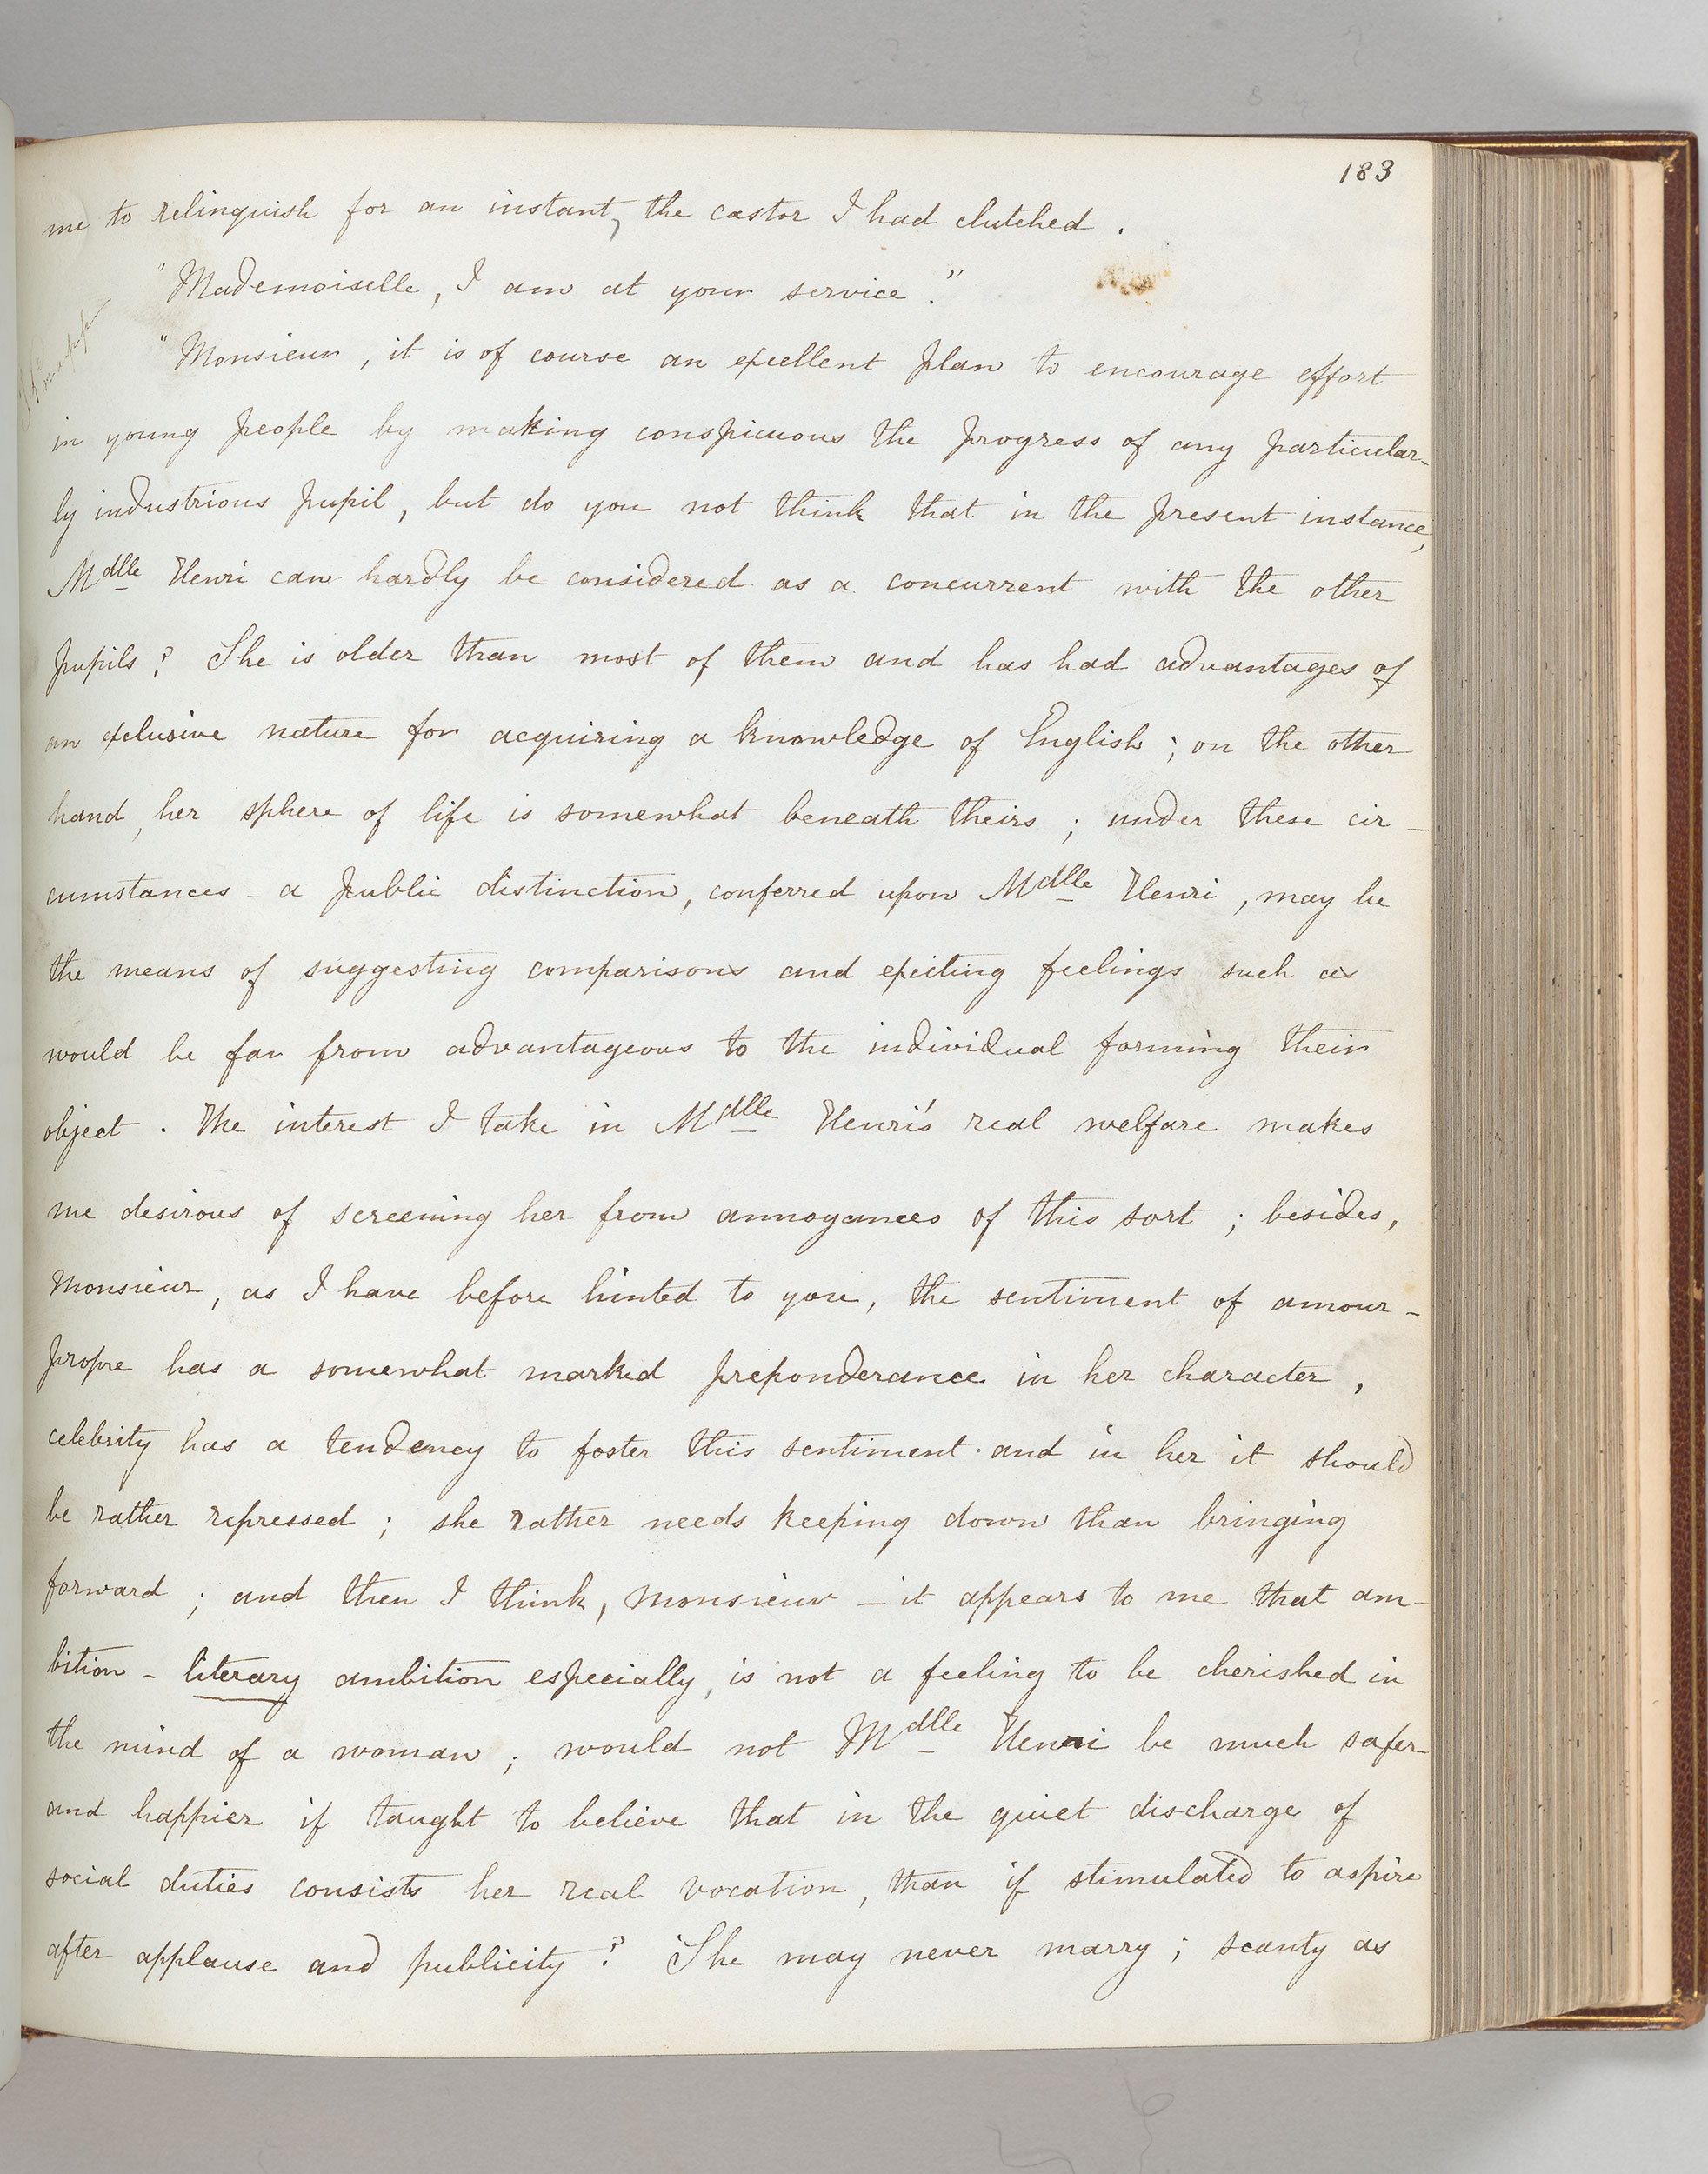 183
me to relinquish for an instant, the castor I had clutched.
"Mademoiselle, I am at your service."
"Monsieur, it is of course an excellent plan to encourage effort
in young people by making conspicuous the progress of any particular-
ly industrious pupil, but do you not think that in the present instance,
Mdlle Henri can hardly be considered as a concurrent with the other
pupils? She is older than most of them and has had advantages of
an exclusive nature for acquiring a knowledge of English; on the other
hand, her sphere of life is somewhat beneath theirs; under these cir-
cumstances - a public distinction, conferred upon Mdlle Henri, may be
the means of suggesting comparisons and exciting feelings such as
would be far from advantageous to the individual forming their
object. The interest I take in Mdlle Henri's real welfare makes
me desirous of screening her from annoyances of this sort; besides,
Monsieur, as I have before hinted to you, the sentiment of amour-
propre has a somewhat marked preponderance in her character,
celebrity has a tendency to foster this sentiment. and in her it should
be rather repressed; she rather needs keeping down than bringing
forward; and then I think, Monsieur - it appears to me that am-
bition - literary ambition especially, is not a feeling to be cherished in
the mind of a woman; would not Mdlle Henri be much safer
and happier if taught to believe that in the quiet discharge of
social duties consists her real vocation, than if stimulated to aspire
after applause and publicity? She may never marry; scanty as